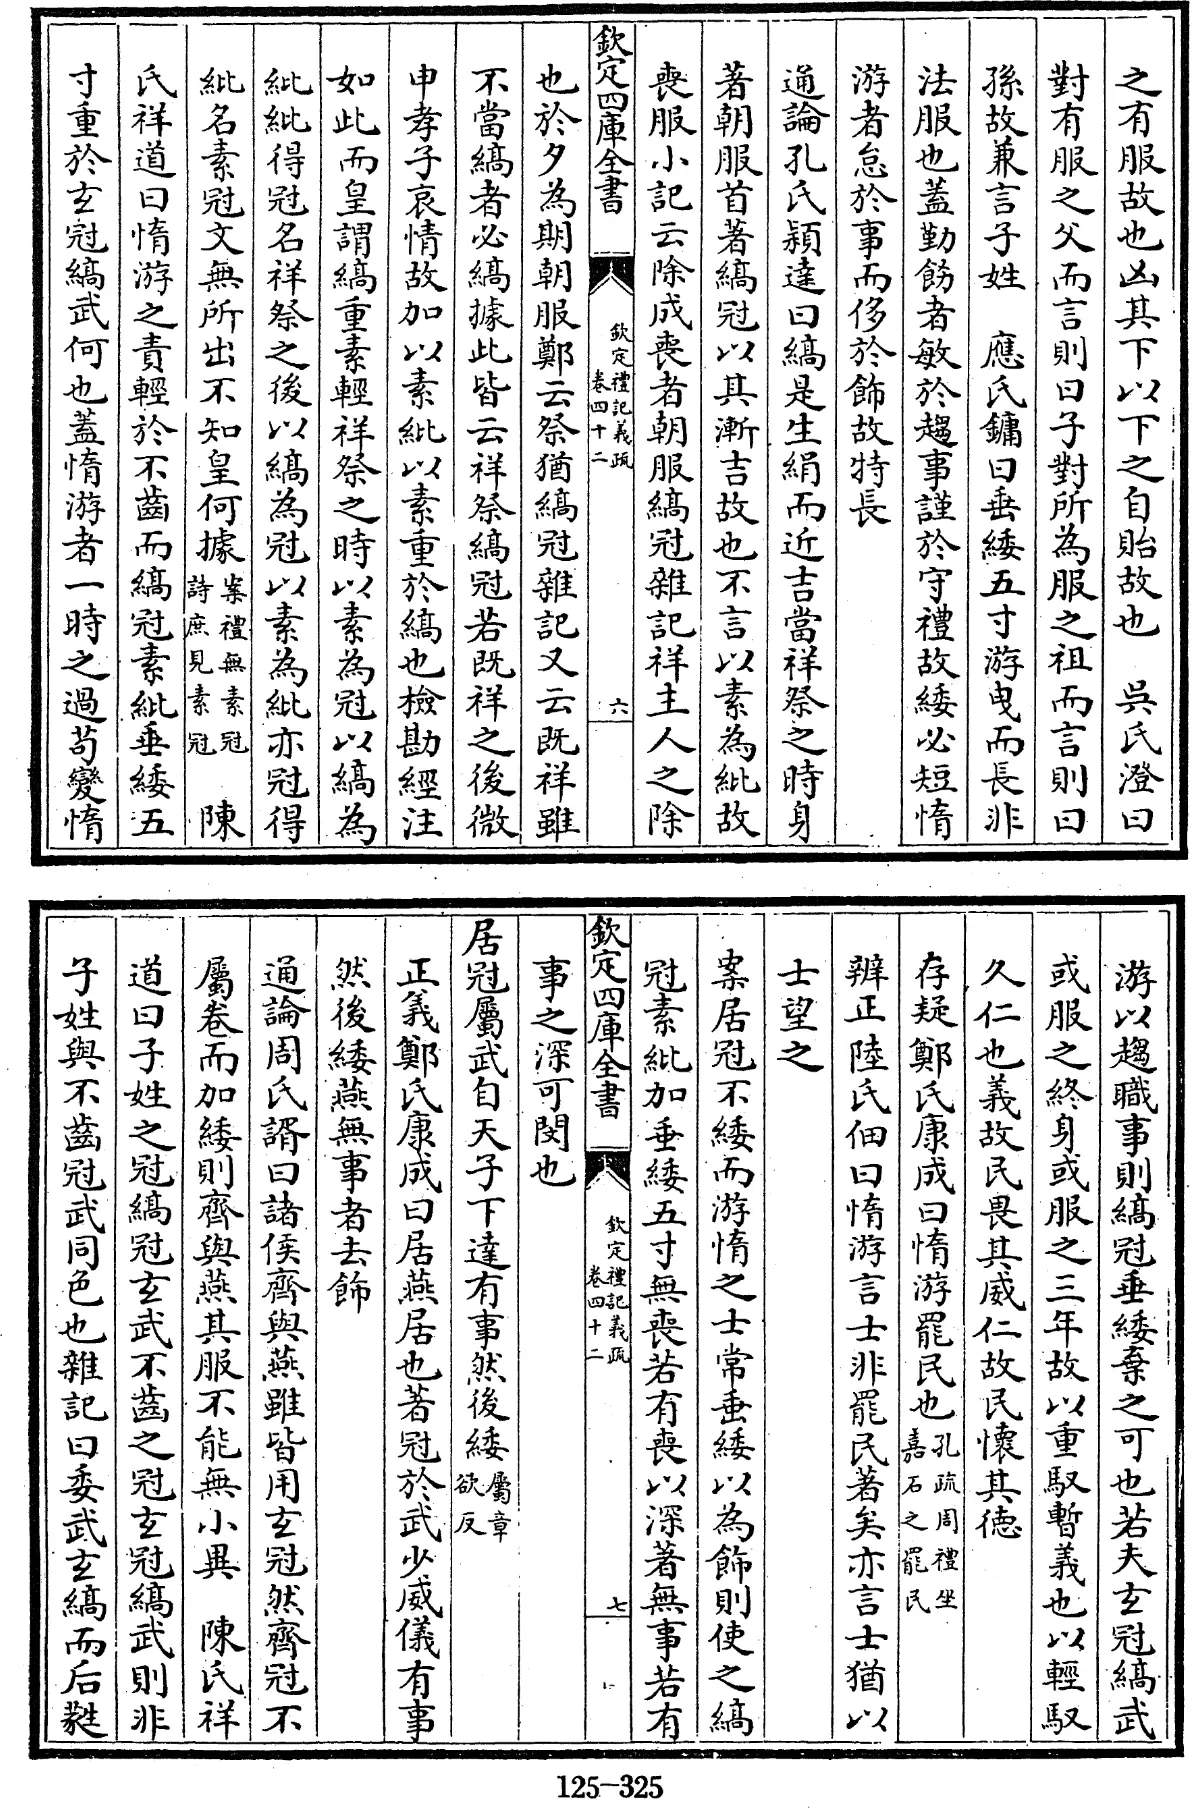 之有服故也凶其下以下之自貽故也　吳氏澄曰
對有服之父而言則曰子對所為服之祖而言則曰
孫故兼言子姓　應氏鏞曰垂緌五寸游曳而長非
法服也蓋勤飭者敏於趨事謹於守禮故緌必短惰
游者怠於事而侈於飾故特長
通論孔氏穎達曰縞是生絹而近吉當祥祭之時身
著朝服首著縞冠以其漸吉故也不言以素為紕故
喪服小記云除成喪者朝服縞冠雜記祥主人之除
欽定四庫全書
欽定禮記義疏
卷四十二
六
也於夕為期朝服鄭云祭猶縞冠雜記又云既祥雖
不當縞者必縞據此皆云祥祭縞冠若既祥之後微
申孝子哀情故加以素紕以素重於縞也檢勘經注
如此而皇謂縞重素輕祥祭之時以素為冠以縞為
紕紕得冠名祥祭之後以縞為冠以素為紕亦冠得
紕名素冠文無所出不知皇何據案禮無素冠詩庶見素冠　陳
氏祥道曰惰游之責輕於不齒而縞冠素紕垂緌五
寸重於玄冠縞武何也蓋惰游者一時之過茍變惰
游以趨職事則縞冠垂緌棄之可也若夫玄冠縞武
或服之終身或服之三年故以重馭暫義也以輕馭
久仁也義故民畏其威仁故民懷其德
存疑鄭氏康成曰惰游罷民也孔疏周禮坐嘉石之罷民
辨正陸氏佃曰惰游言士非罷民著矣亦言士猶以
士望之
案居冠不緌而游惰之士常垂緌以為飾則使之縞
冠素紕加垂緌五寸無喪若有喪以深著無事若有
欽定四庫全書
欽定禮記義疏
卷四十二
七
事之深可閔也
居冠屬武自天子下達有事然後緌屬章欲反
正義鄭氏康成曰居燕居也著冠於武少威儀有事
然後緌燕無事者去飾
通論周氏諝曰諸侯齊與燕雖皆用玄冠然齊冠不
屬卷而加緌則齊與燕其服不能無小異　陳氏祥
道曰子姓之冠縞冠玄武不齒之冠玄冠縞武則非
子姓與不齒冠武同色也雜記曰委武玄縞而后蕤
125-325